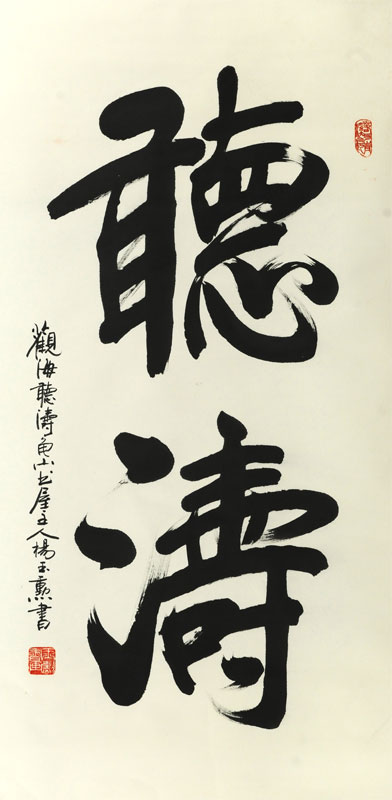 聽濤
觀海聽濤龟山书屋主人楊玉勲書